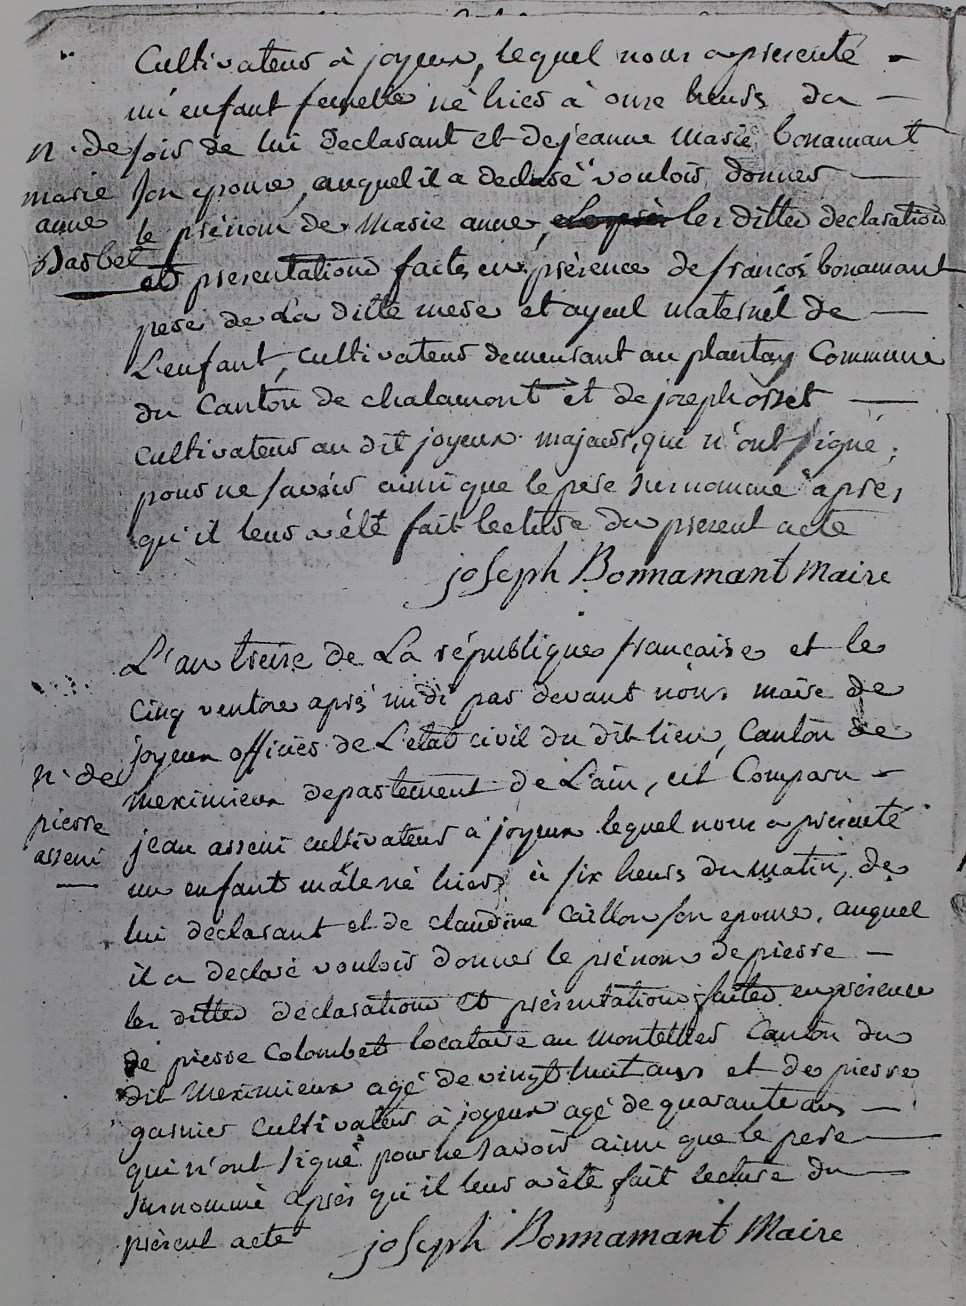 Cultivateur à joyeux, lequel nous a presenté
un enfant femelle né hier à onze heurs du
n. de
soir de lui declarant et de jeanne marie bonamant
marie
son epouse, auquel il a declaré vouloir donner
anne
le prénom de marie anne, les dittes declaration
Barbet
et presentation faites en présence de francos bonamant
pere de La ditte mere et ayeul maternel de
L'enfant, cultivateur demeurant au plantay Commune
du Canton de chalamont et de joseph
cultivateur au dit joyeux majeurs, qui n'ont signé,
pour ne savoir ainsi que le pere surnommé après
qu'il leur a été fait lecture du present acte
joseph Bonnamant Maire
L'an treize de La république française et le
Cinq ventose après midi par devant nous maire de
joyeux officier de L'etat civil du dit lieu, Canton de
n. de
meximieux departement de L'ain, est Comparu
pierre
jean asseni cultivateur à joyeux lequel nous a présenté
asseni
un enfant mâle né hier à six heurs du matin, de
lui déclarant et de claudine Caillon son epouse, auquel
il a declaré vouloir donner le prénom de pierre
les dittes déclaration et présentation faites en présence
de pierre Colombet locataire au montellier Canton du
dit meximieux agé de vingt huit ans et de pierre
garnier cultivateur à joyeux agé de quarante ans
qui n'ont signé pour ne savoir ainsi que le pere
surnommé après qu'il leur a été fait lecture du
présent acte
joseph Bonnamant Maire